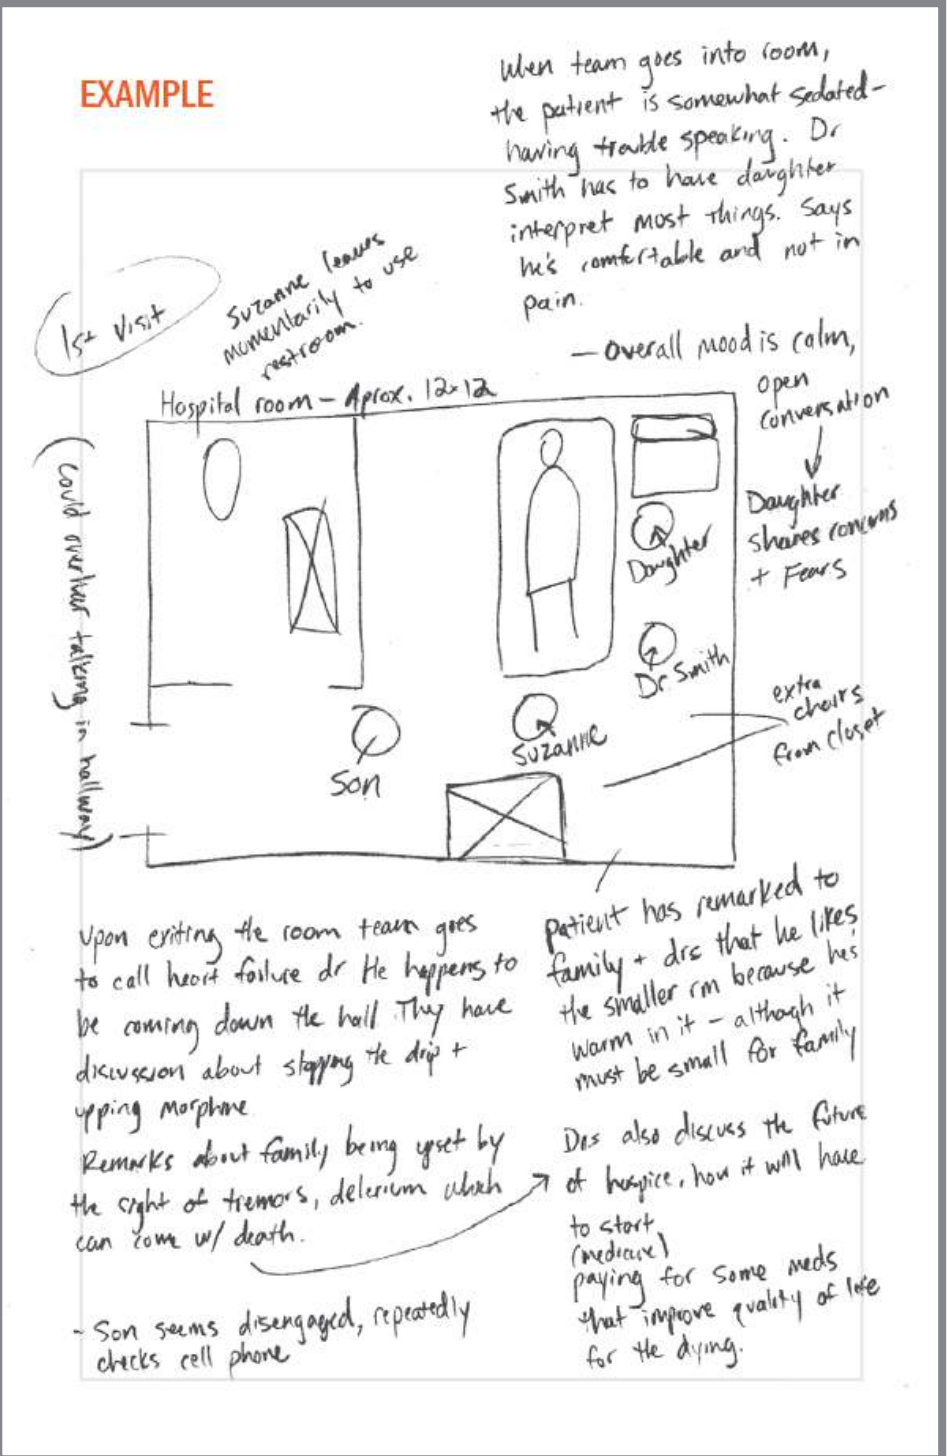 EXAMPLE
When team goes into room,
the patient is somewhat sedated-
having trouble speaking. Dr
Smith has to have daughter
interpret most things. Says
he's comfortable and not in
pain.
- Overall mood is calm,
open
conversation
Daughter
shares concerns
+ Fears
1st Visit
Suzanne leaves
momentarily to use
restroom.
Hospital room - Aprox. 12x12
(could overhear talking in hallway)
Daughter
Dr Smith
Suzanne
Son
extra
chairs
from closet
Upon exiting the room team goes
to call heart failure dr He happens to
be coming down the hall. They have
discussion about stopping the drip +
upping morphine
Remarks about family being upset by
the sight of tremors, delerium which
can come w/ death.
- Son seems disengaged, repeatedly
checks cell phone
patient has remarked to
family + drs that he likes
the smaller rm because he's
warm in it - although it
must be small for family
Drs also discuss the future
of hospice, how it will have
to start
(medicare)
paying for some meds
that improve quality of life
for the dying.